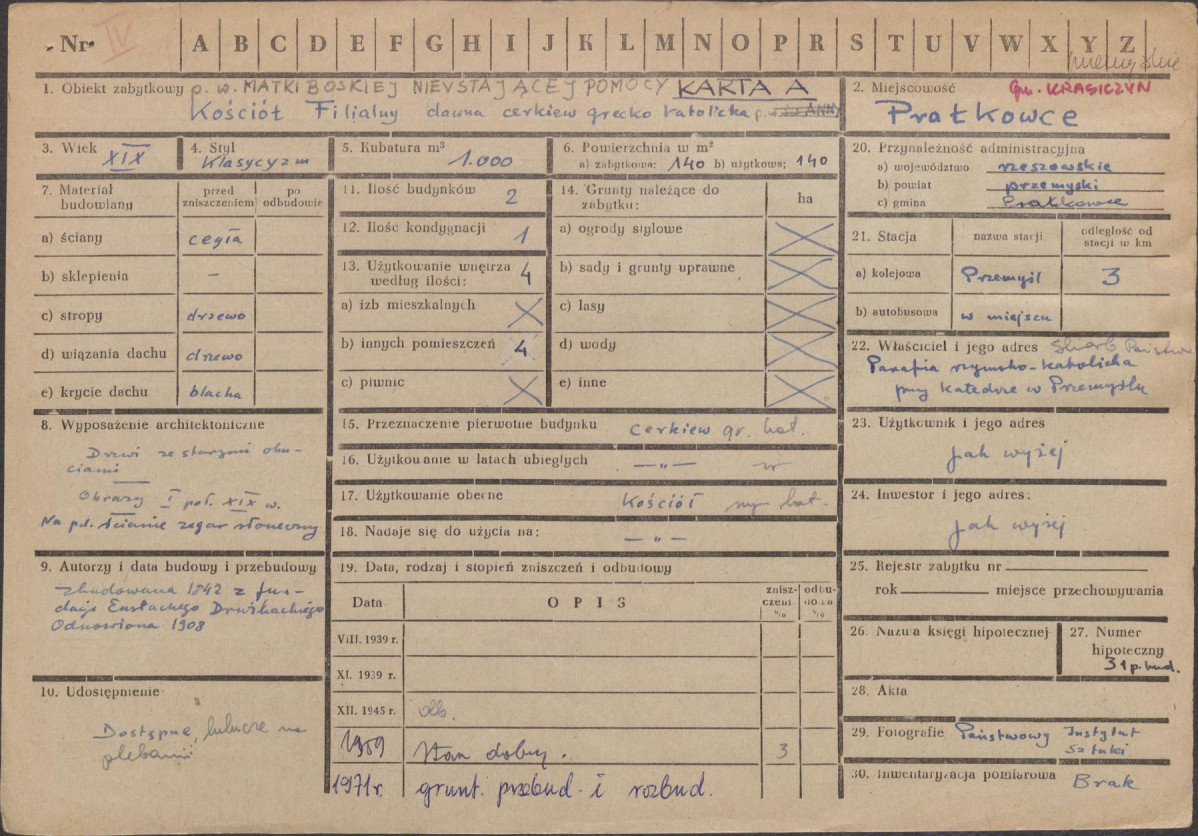 Nr. IV A B C D E F G H I J K L M N O P R S T U V W X Y Z
1. Obiekt zabytkowy p. w. MATKI BOSKIEJ NIEUSTAJĄCEJ POMOCY KARTA A
Kościół Filialny dawna cerkiew grecko katolicka p. w. św. ANNY
2. Miejscowość Gm. KRASICZYN
Prałkowce
3. Wiek XIX
4. Styl
Klasycyzm
5. Kubatura m³
1.000
6. Powierzchnia w m²
a) zabytkowa; 140 b) użytkowa; 140
7. Materiał budowlany
przed zniszczeniem
po odbudowie
a) ściany cegła
b) sklepienia –
c) stropy drzewo
d) wiązania dachu drzewo
e) krycie dachu blacha
8. Wyposażenie architektoniczne
Drzwi ze starymi oku-
ciami
Obrazy I poł. XIX w.
Na pd. ścianie zegar słoneczny
9. Autorzy i data budowy i przebudowy
zbudowana 1842 z fun-
dacji Eustachego Drużbackiego
Odnowiona 1908
10. Udostępnienie
Dostępne, klucze na
plebanii
11. Ilość budynków 2
12. Ilość kondygnacji 1
13. Użytkowanie wnętrza 4
według ilości:
a) izb mieszkalnych
b) innych pomieszczeń 4
c) piwnic
14. Grunty należące do
zabytku:
ha
a) ogrody stylowe
b) sady i grunty uprawne
c) lasy
d) wody
e) inne
15. Przeznaczenie pierwotne budynku cerkiew gr. kat.
16. Użytkowanie w latach ubiegłych — „ —
17. Użytkowanie obecne Kościół rzym kat.
18. Nadaje się do użycia na: — „ —
19. Data, rodzaj i stopień zniszczeń i odbudowy
Data
O P I S
znisz-
czeni
%
odbu-
dowa
%
VIII. 1939 r.
XI. 1939 r.
XII. 1945 r.
1959 Stan dobry. 3
1971r. grunt. przebud. i rozbud.
20. Przynależność administracyjna
a) województwo rzeszowskie
b) powiat przemyski
c) gmina Prałkowce
21. Stacja
nazwa stacji
odległość od
stacji w km
a) kolejowa Przemyśl 3
b) autobusowa w miejscu
22. Właściciel i jego adres Skarb Państwa
Parafia rzymsko-katolicka
przy Katedrze w Przemyślu
23. Użytkownik i jego adres
jak wyżej
24. Inwestor i jego adres:
jak wyżej
25. Rejestr zabytku nr
rok miejsce przechowywania
26. Nazwa księgi hipotecznej
27. Numer
hipoteczny
31 p. bud.
28. Akta
29. Fotografie Państwowy Instytut
Sztuki
30. Inwentaryzacja pomiarowa Brak